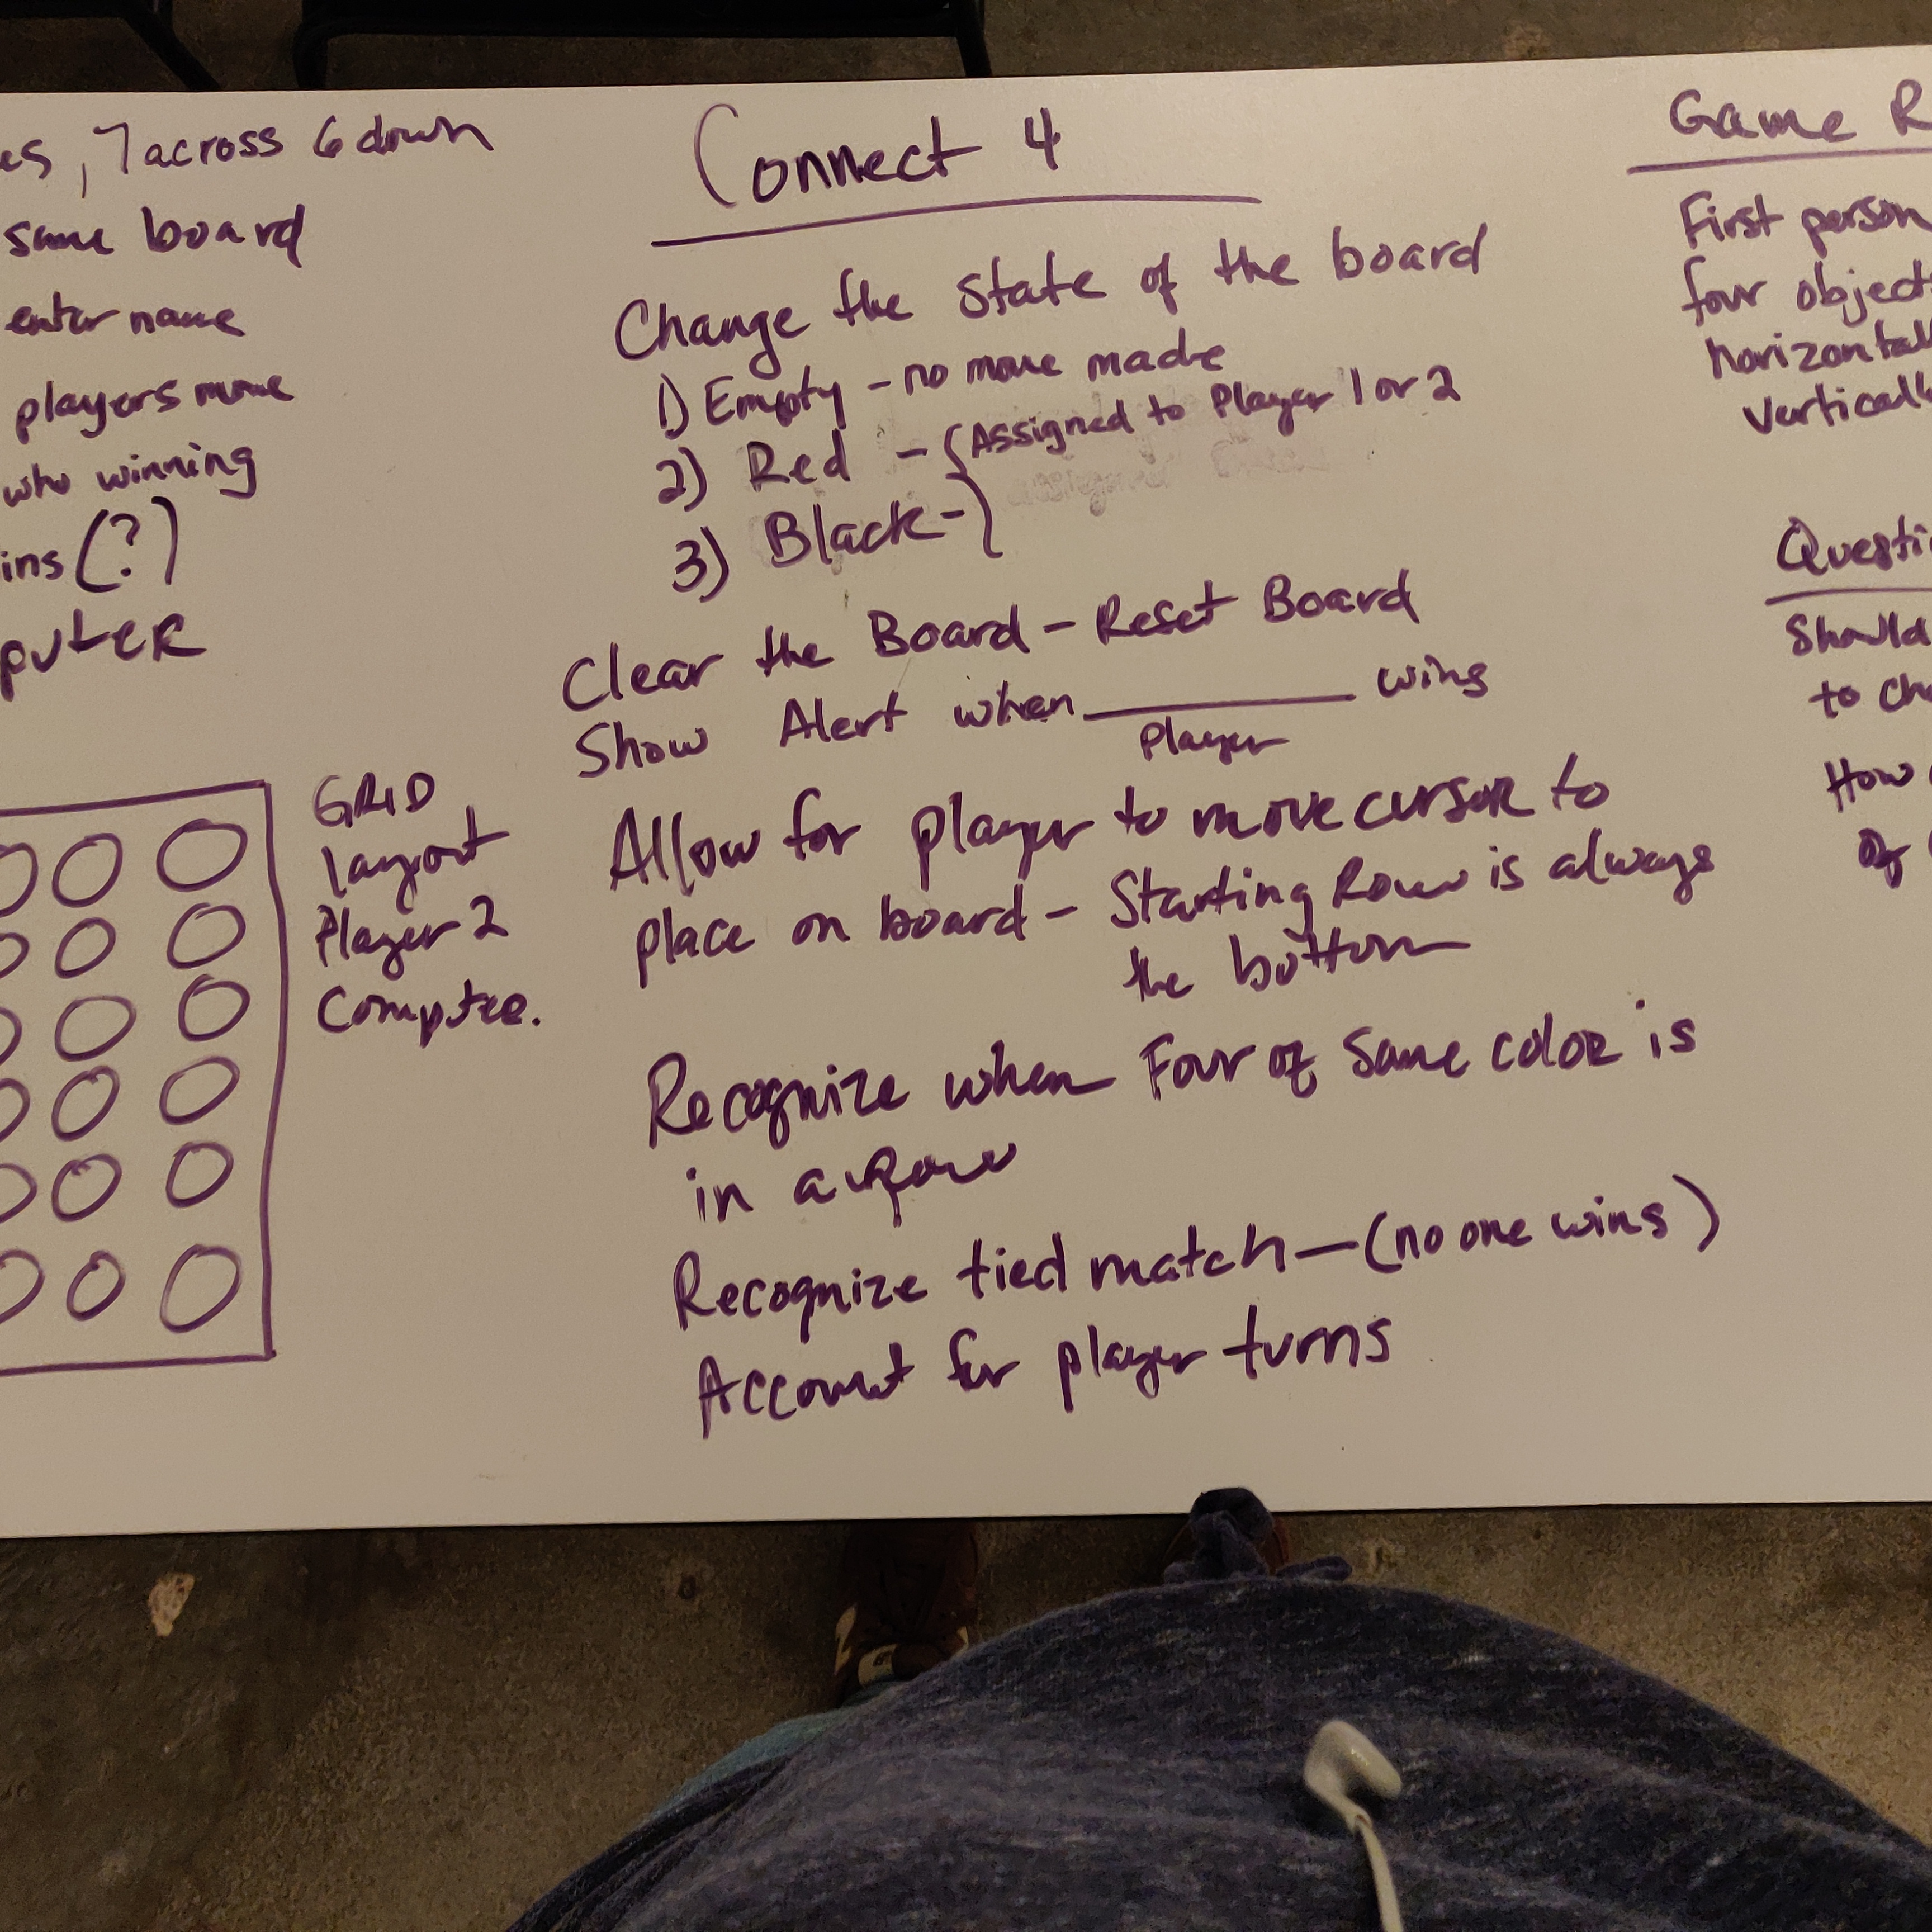 7 across 6 down
same board
enter name
players move
who winning
(?)
Connect 4
Change the state of the board
1) Empty - no move made
2) Red - { Assigned to Player 1 or 2
3) Black - }
Clear the Board - Reset Board
Show Alert when ______ wins
Player
Allow for player to move cursor to
place on board - Starting Row is always
the bottom
Recognize when Four of Same color is
in a Row
Recognize tied match - (no one wins)
Account for player turns
GRID
layout
Player 2
Game R
First person
four object
horizontal
vertical
Questi
Should
to
How
of